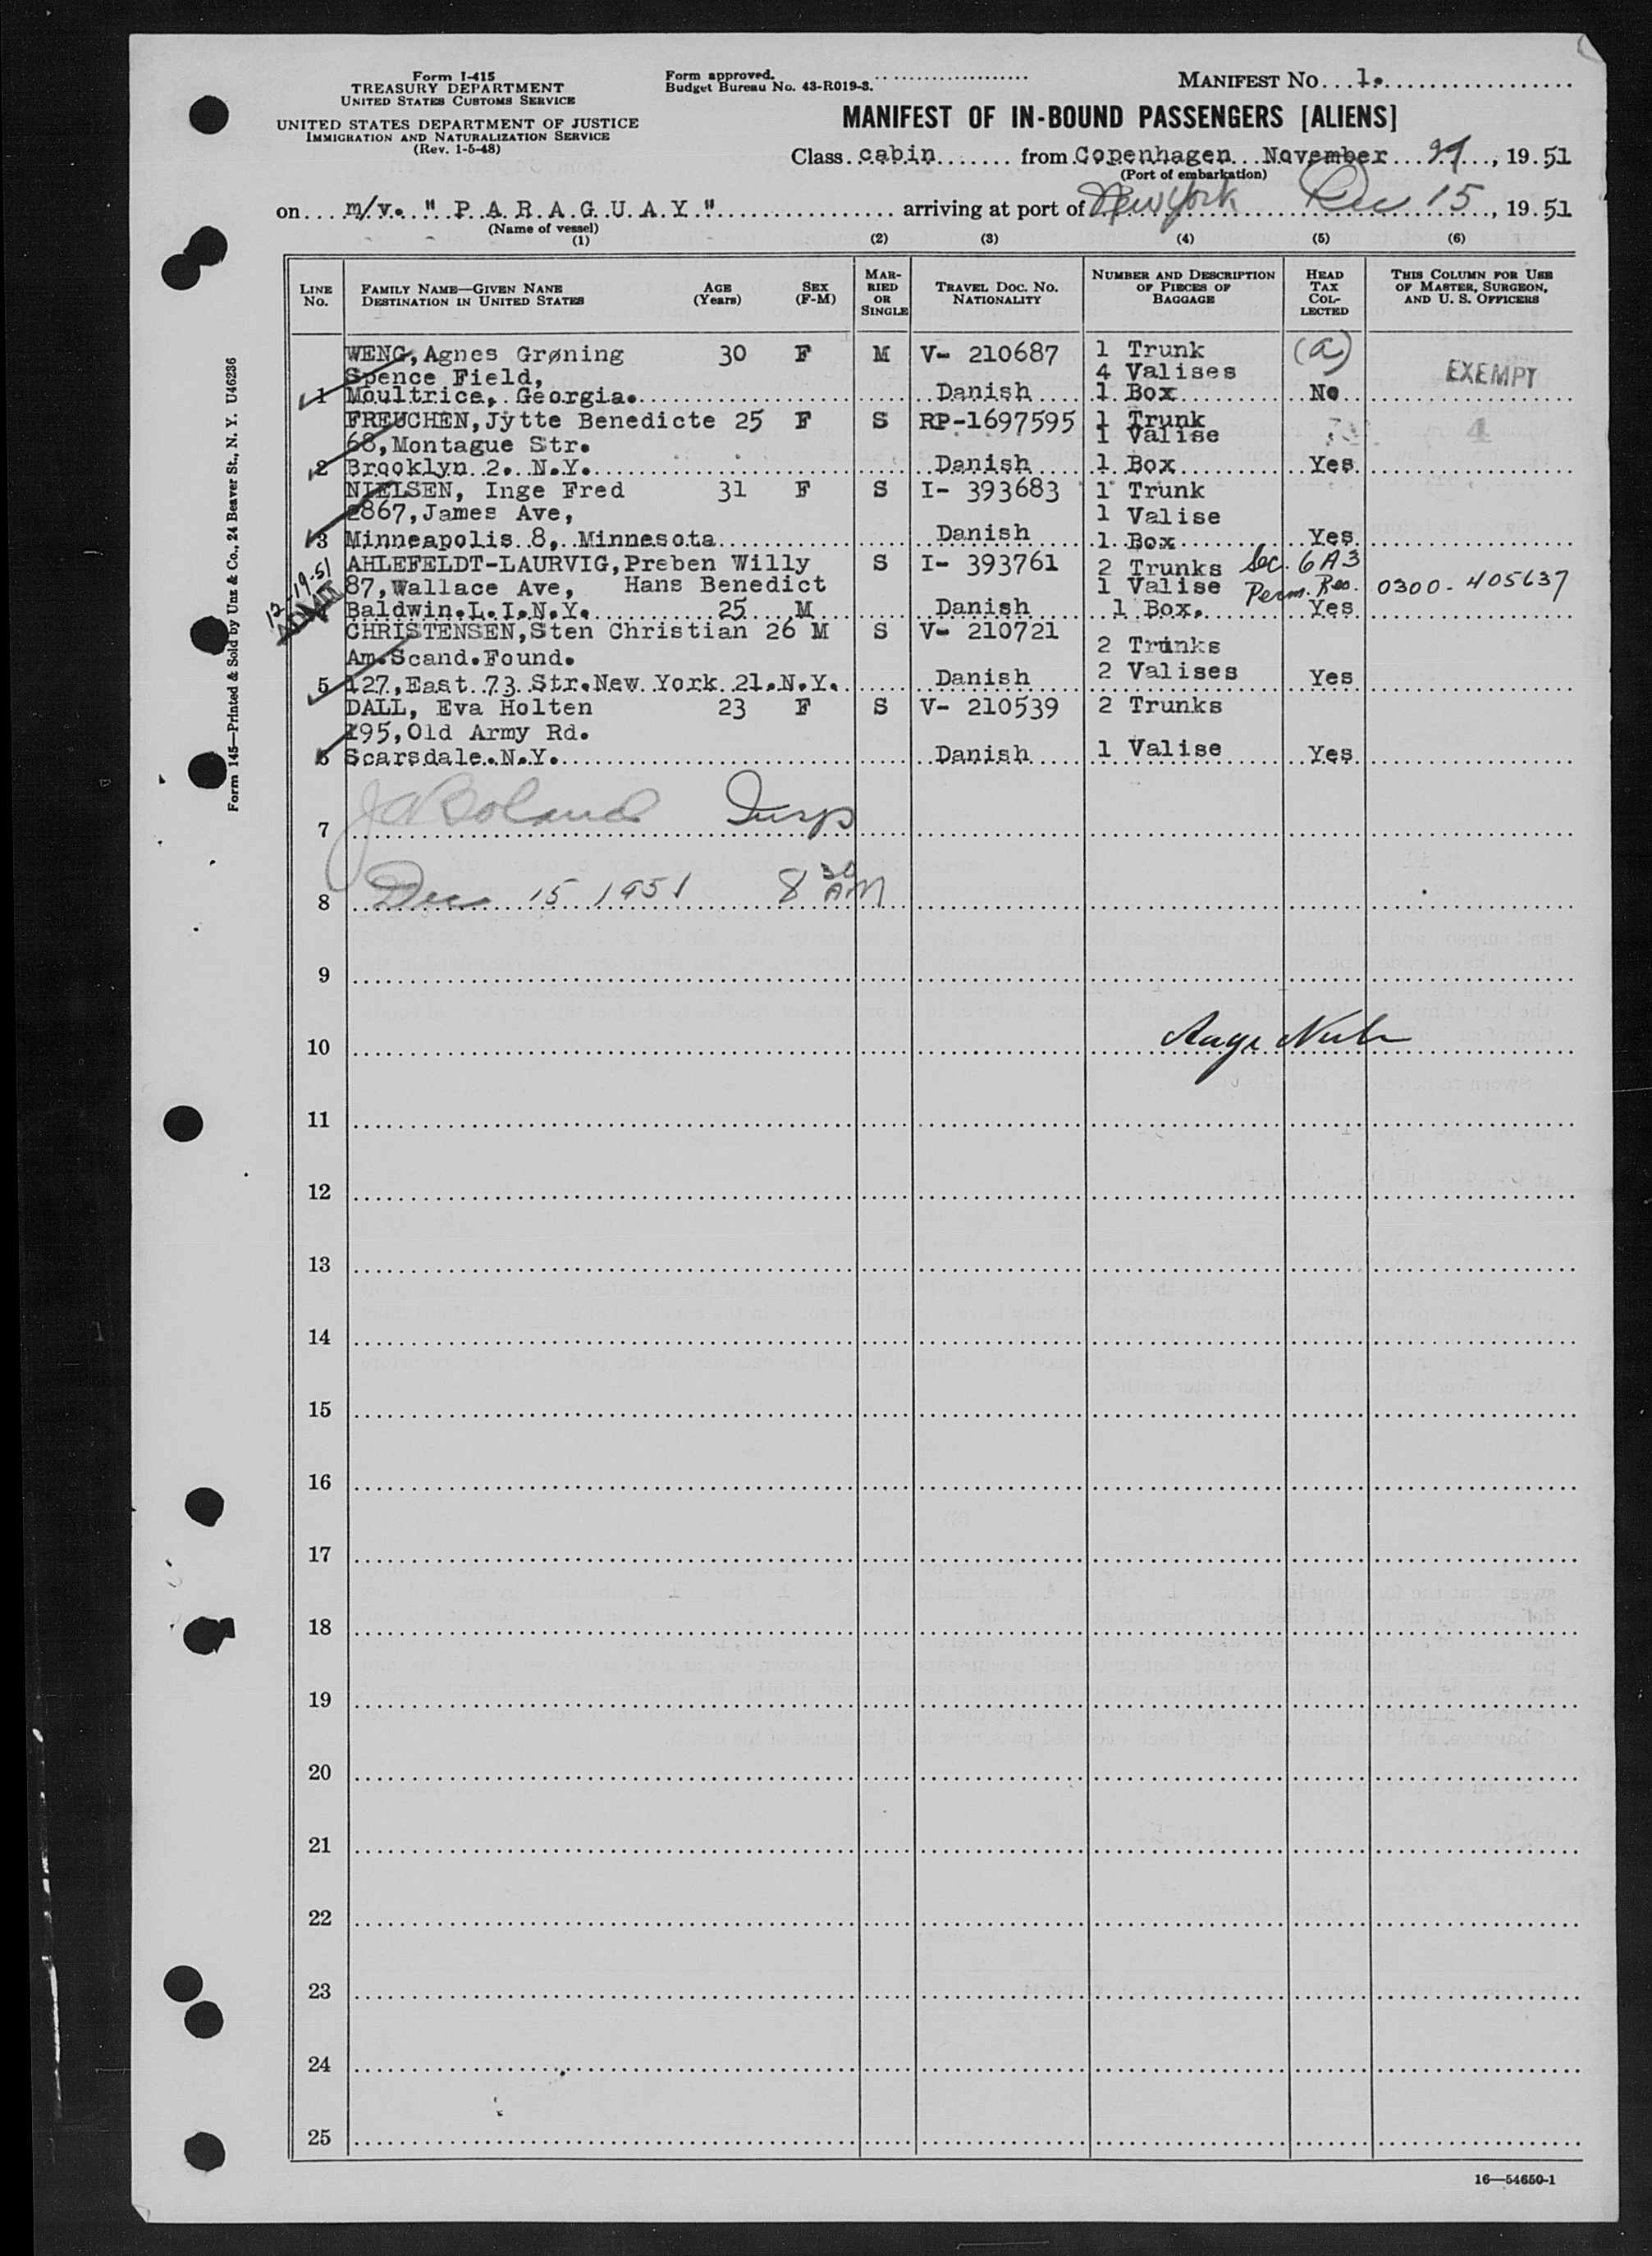 Form I-415
TREASURY DEPARTMENT
UNITED STATES CUSTOMS SERVICE
UNITED STATES DEPARTMENT OF JUSTICE
IMMIGRATION AND NATURALIZATION SERVICE
(Rev. 1-5-48)
Form approved.
Budget Bureau No. 43-R019-3.
MANIFEST NO. 1.
MANIFEST OF IN-BOUND PASSENGERS [ALIENS]
Class cabin from Copenhagen November 27, 1951
(Port of embarkation)
on m/v. " P A R A G U A Y " arriving at port of New York Dec 15, 1951
(Name of vessel)
(1) (2) (3) (4) (5) (6)
LINE No.
FAMILY NAME—GIVEN NANE
DESTINATION IN UNITED STATES
AGE (Years)
SEX (F-M)
MARRIED OR SINGLE
TRAVEL DOC. NO.
NATIONALITY
NUMBER AND DESCRIPTION OF PIECES OF BAGGAGE
HEAD TAX COLLECTED
THIS COLUMN FOR USE OF MASTER, SURGEON, AND U. S. OFFICERS
WENG, Agnes Grøning 30 F M V- 210687 1 Trunk (a)
Spence Field, 4 Valises EXEMPT
1 Moultrice, Georgia. Danish 1 Box No
FREUCHEN, Jytte Benedicte 25 F S RP-1697595 1 Trunk
68, Montague Str. 1 Valise 4
2 Brooklyn 2. N.Y. Danish 1 Box Yes
NIELSEN, Inge Fred 31 F S I- 393683 1 Trunk
2867, James Ave, 1 Valise
3 Minneapolis 8, Minnesota Danish 1 Box Yes
AHLEFELDT-LAURVIG, Preben Willy S I- 393761 2 Trunks Sec. 6A3
12-19-51 87, Wallace Ave, Hans Benedict 1 Valise Perm. Res. 0300-405637
Baldwin.L.I.N.Y. 25 M Danish 1 Box. Yes
CHRISTENSEN, Sten Christian 26 M S V- 210721
Am.Scand.Found. 2 Trunks
5 127, East 73 Str.New York 21.N.Y. Danish 2 Valises Yes
DALL, Eva Holten 23 F S V- 210539 2 Trunks
195, Old Army Rd.
6 Scarsdale.N.Y. Danish 1 Valise Yes
7 JA Boland Insp
8 Dec 15 1951 8 30 AM
9
10 Aage
11
12
13
14
15
16
17
18
19
20
21
22
23
24
25
Form 145—Printed & Sold by Unz & Co., 24 Beaver St., N. Y. U46236
16—54650-1